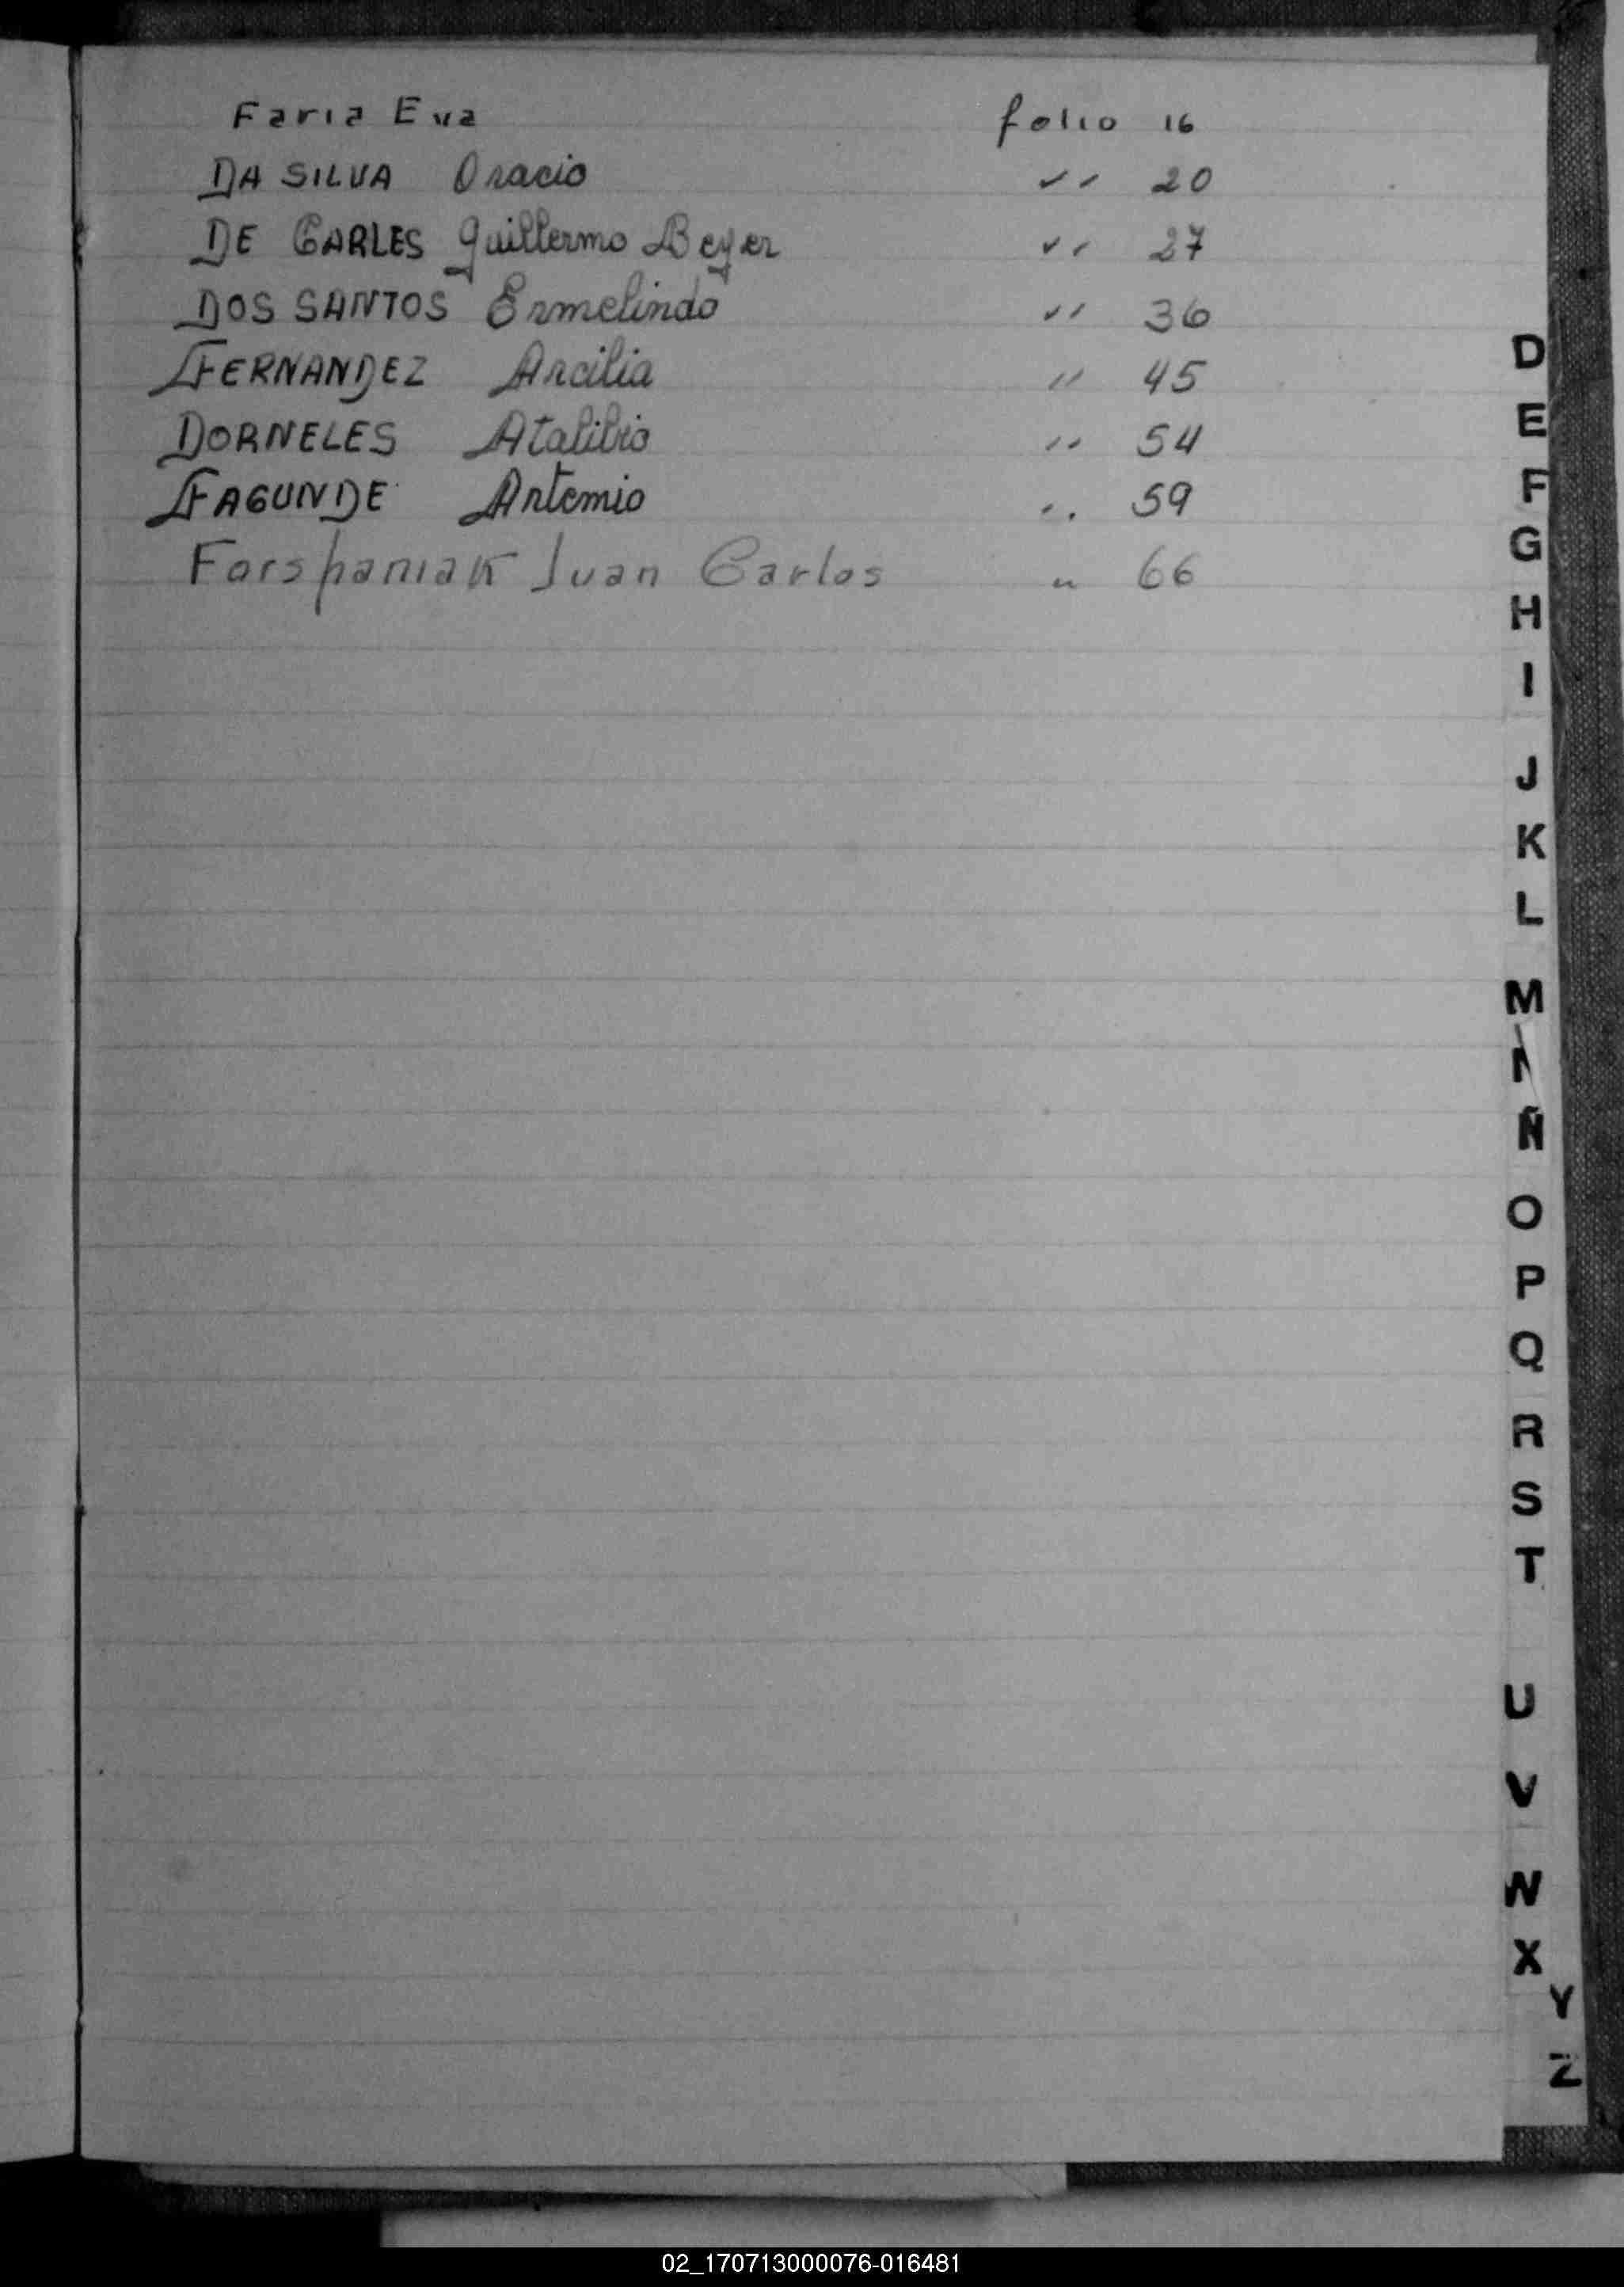 Faria Eva folio 16
DA SILVA Oracio " 20
DE CARLES Guillermo Beyer " 27
DOS SANTOS Ermelindo " 36
FERNANDEZ Arcilia " 45
DORNELES Atalibio " 54
FAGUNDE Artemio " 59
Forshaniak Juan Carlos " 66
D
E
F
G
H
I
J
K
L
M
N
Ñ
O
P
Q
R
S
T
U
V
W
X
Y
Z
02_170713000076-016481